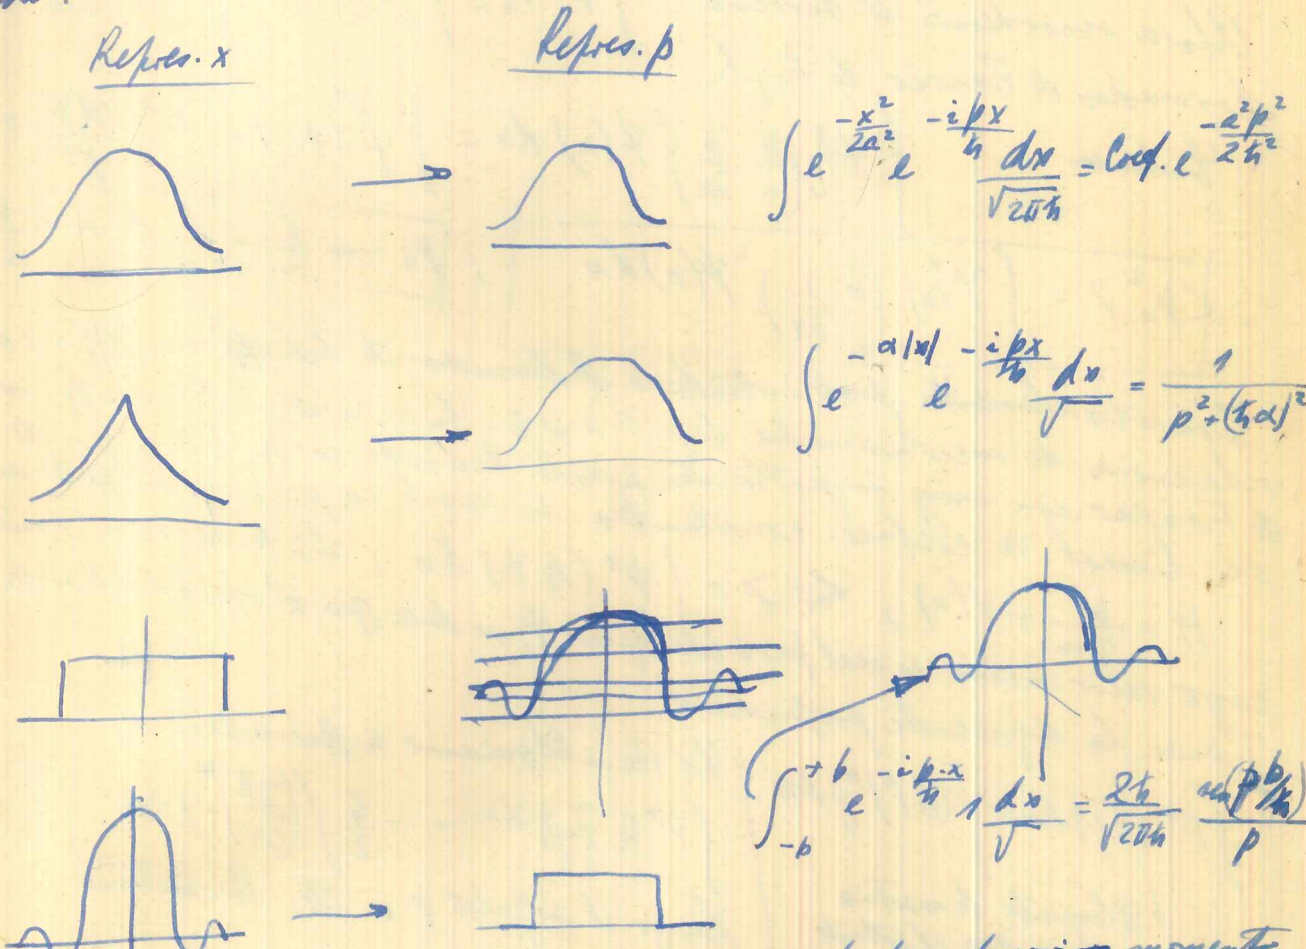 Repres. x Repres. p
∫ e^{-x²/2a²} e^{-ipx/ħ} dx/√2πħ = Coef. e^{-a²p²/2ħ²}
∫ e^{-α|x|} e^{-ipx/ħ} dx/√ = 1/(p²+(ħα)²)
∫_{-b}^{+b} e^{-ip·x/ħ} 1 dx/√ = 2ħ/√2πħ sen(pb/ħ)/p